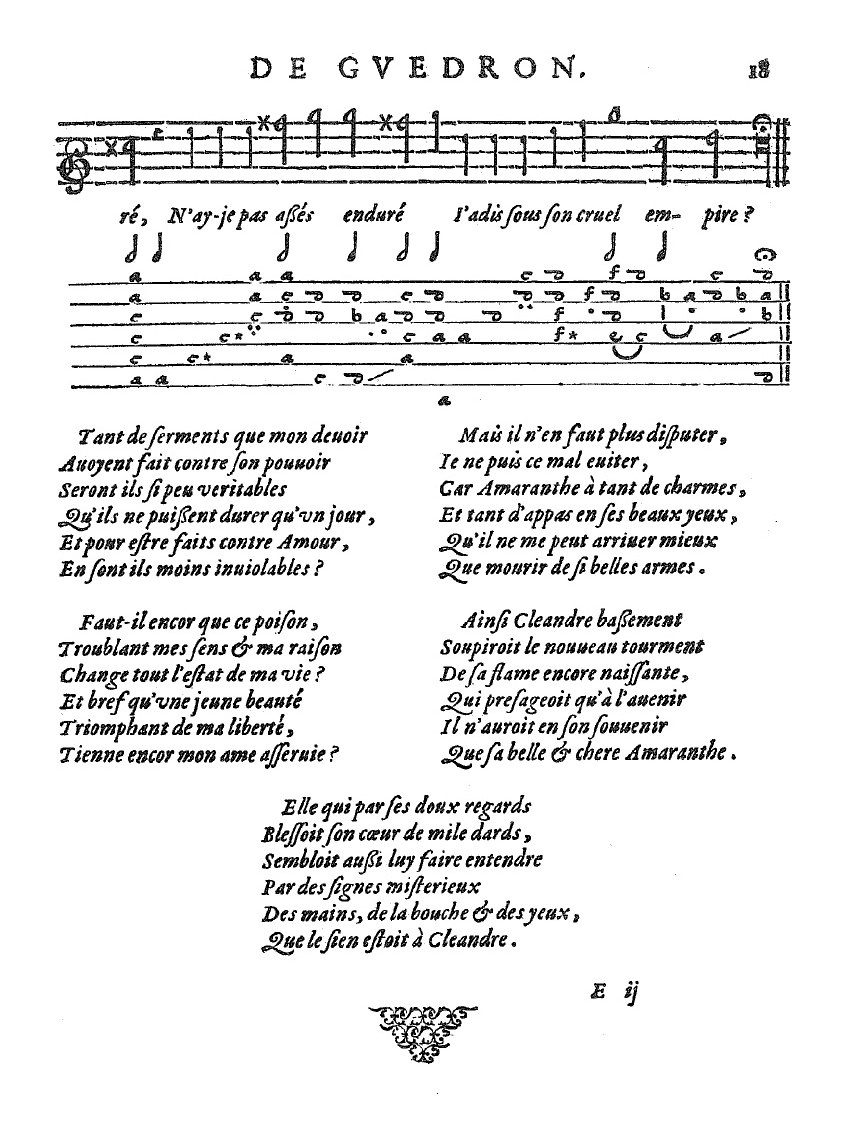 DE GVEDRON.
18
ré, N'ay-je pas aſſés enduré I'adis ſous ſon cruel em- pire ?
Tant de ſerments que mon deuoir
Auoyent fait contre ſon pouuoir
Seront ils ſi peu veritables
Qu'ils ne puiſſent durer qu'vn jour,
Et pour eſtre faits contre Amour,
En ſont ils moins inuiolables ?
Faut-il encor que ce poiſon,
Troublant mes ſens & ma raiſon
Change tout l'eſtat de ma vie ?
Et bref qu'vne jeune beauté
Triomphant de ma liberté,
Tienne encor mon ame aſſeruie ?
Mais il n'en faut plus diſputer,
Ie ne puis ce mal euiter,
Car Amaranthe à tant de charmes,
Et tant d'appas en ſes beaux yeux,
Qu'il ne me peut arriuer mieux
Que mourir de ſi belles armes.
Ainſi Cleandre baſſement
Soupiroit le nouueau tourment
De ſa flame encore naiſſante,
Qui preſageoit qu'à l'auenir
Il n'auroit en ſon ſouuenir
Que ſa belle & chere Amaranthe.
Elle qui par ſes doux regards
Bleſſoit ſon cœur de mile dards,
Sembloit auſſi luy faire entendre
Par des ſignes miſterieux
Des mains, de la bouche & des yeux,
Que le ſien eſtoit à Cleandre.
E ij